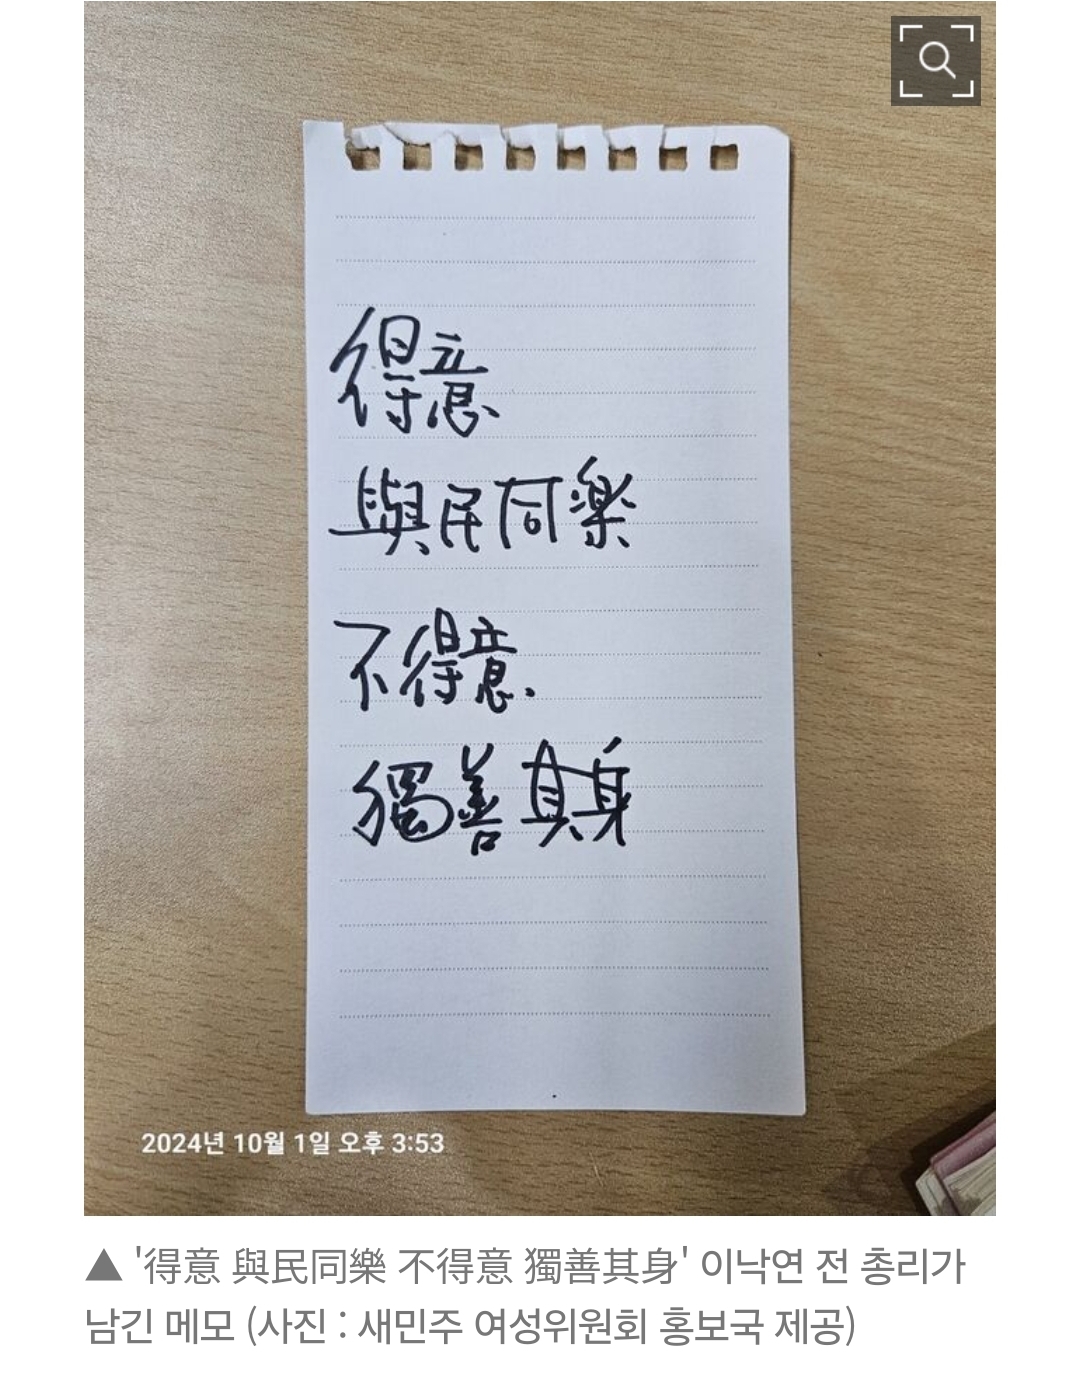 得意
與民同樂
不得意
獨善其身
2024년 10월 1일 오후 3:53
▲ '得意 與民同樂 不得意 獨善其身' 이낙연 전 총리가
남긴 메모 (사진 : 새민주 여성위원회 홍보국 제공)